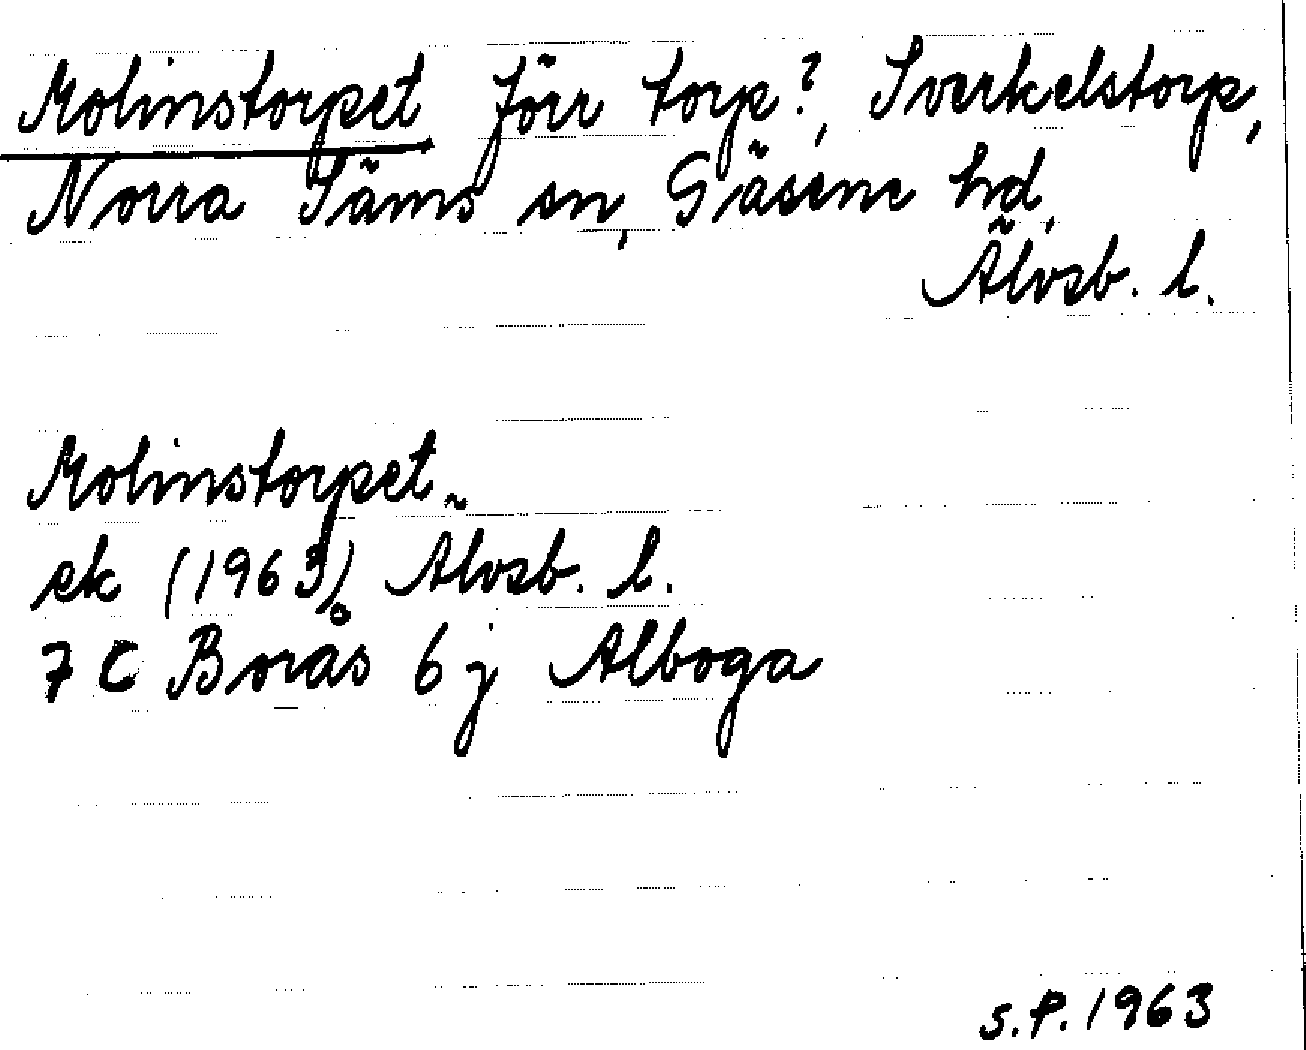 Molinstorpet förr torp?, Sverkelstorp,
Norra Säms sn, Gäsene hd,
Älvsb. l.
Molinstorpet
ek (1963) Älvsb. l.
7 C Borås 6 j Alboga
S.P. 1963